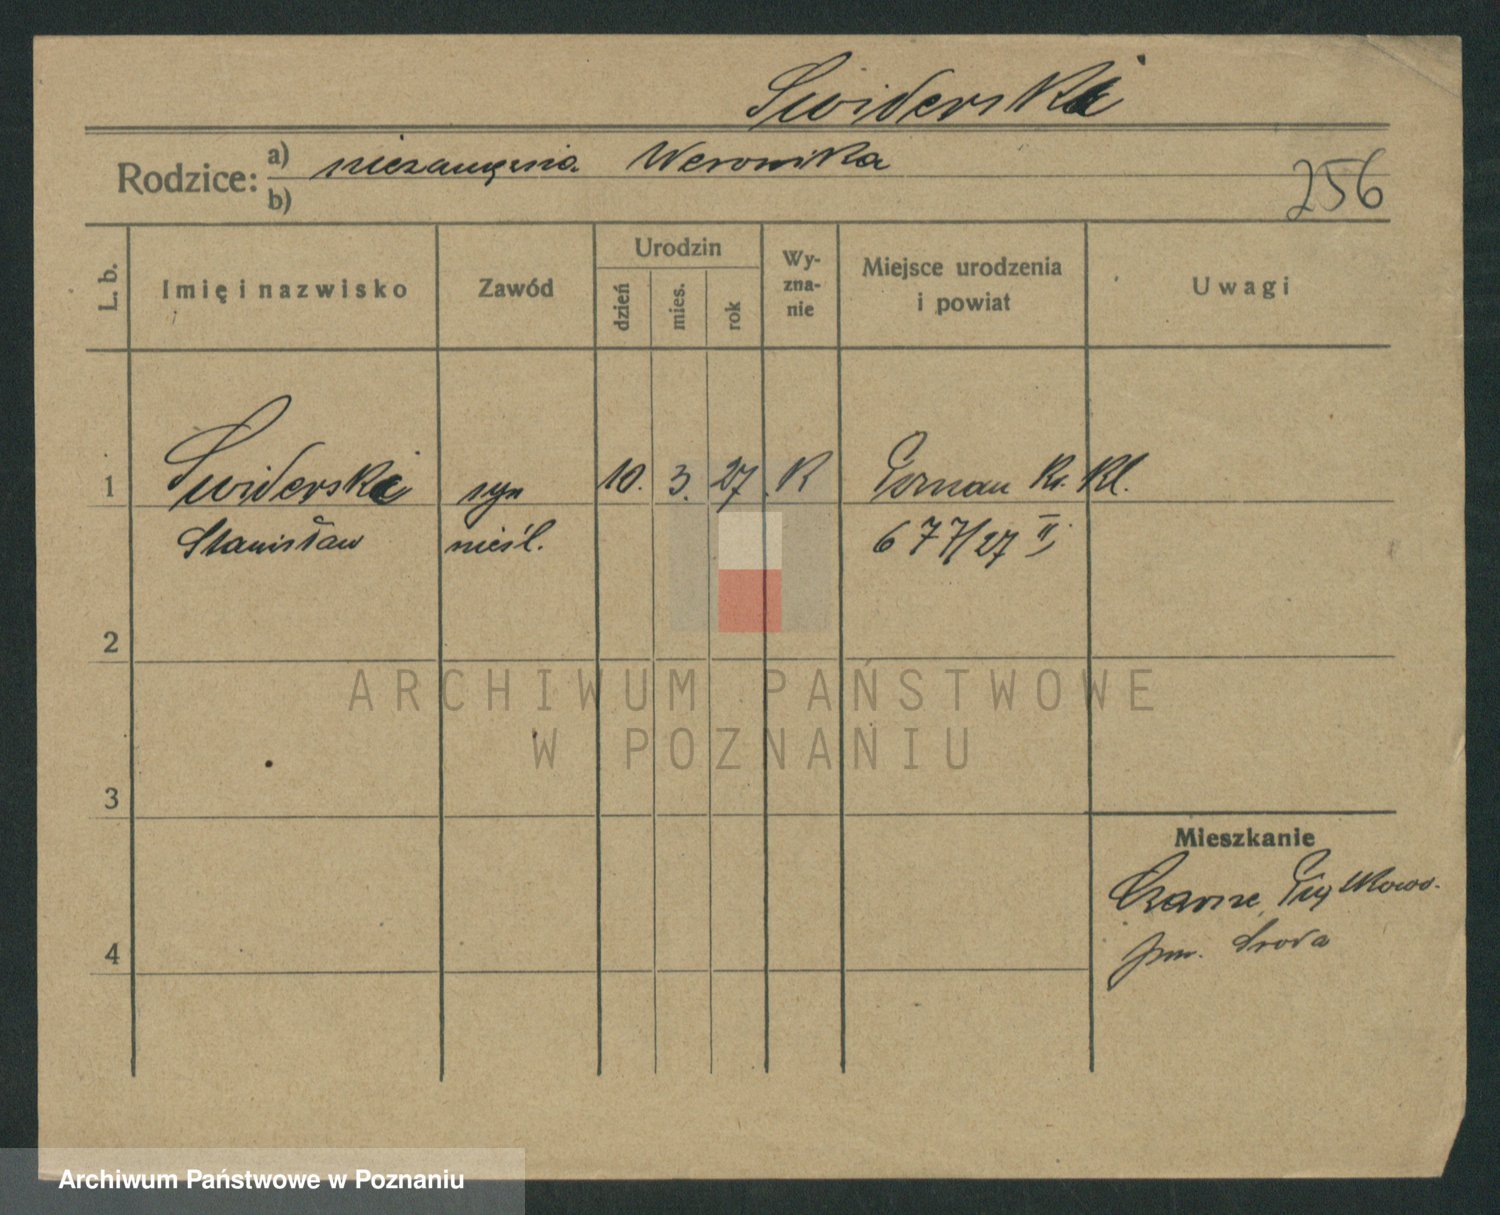 Swiderski
Rodzice: a) niezamężna Weronika
b)
256
L. b. Imię i nazwisko Zawód Urodzin dzień mies. rok Wyzna-nie Miejsce urodzenia i powiat Uwagi
1 Swiderski syn 10. 3. 27 R Poznań
Stanisław nieśl. 677/27 II
2
ARCHIWUM PAŃSTWOWE
W POZNANIU
3
Mieszkanie
Czarne Piątkowo.
4 pow. Sroda
Archiwum Państwowe w Poznaniu